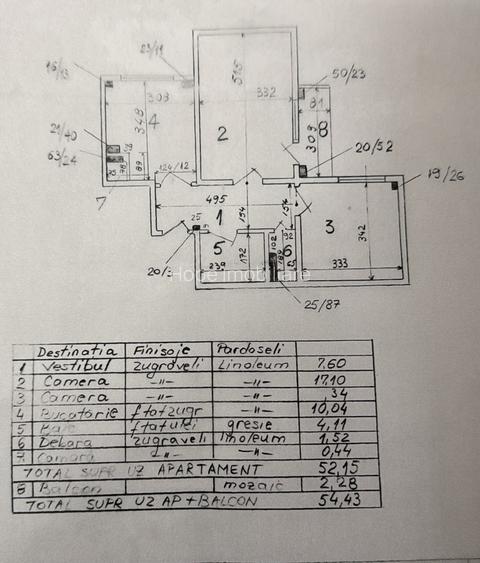 23/11
16/13
303
4
348
515
332
2
50/23
81
8
309
21/40
63/24
78
89
124/12
20/52
19/26
7
495
1
154
154
3
342
25
5
172
102
92
6
20/3
239
333
25/87
Hope Imobiliare
Destinatia Finisaje Pardoseli
1 Vestibul zugraveli Linoleum 7,60
2 Camera -"- -"- 17,10
3 Camera -"- -"- ,34
4 Bucatărie ftatzugr -"- 10,04
5 Baie ftatuki gresie 4,11
6 Debara zugraveli linoleum 1,52
7 Camara -"- -"- 0,44
TOTAL SUPR UZ APARTAMENT 52,15
8 Balcon mozaic 2,28
TOTAL SUPR UZ AP+BALCON 54,43